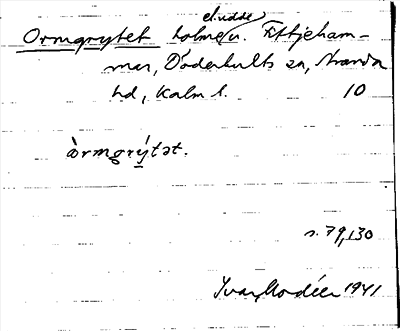 el. udde
Ormgrytet holme u. Fittjeham-
mar, Döderhults sn, Stranda
hd, Kalm l. 10
òrmgrýtət.
s. 79, 130
Ivar Modéer 1941